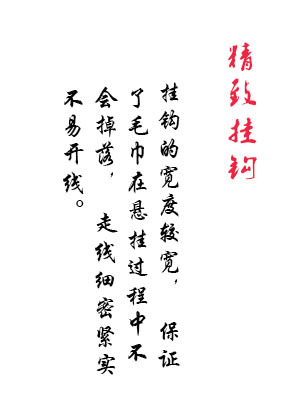 精致挂钩
挂钩的宽度较宽， 保证
了毛巾在悬挂过程中不
会掉落， 走线细密紧实
不易开线。